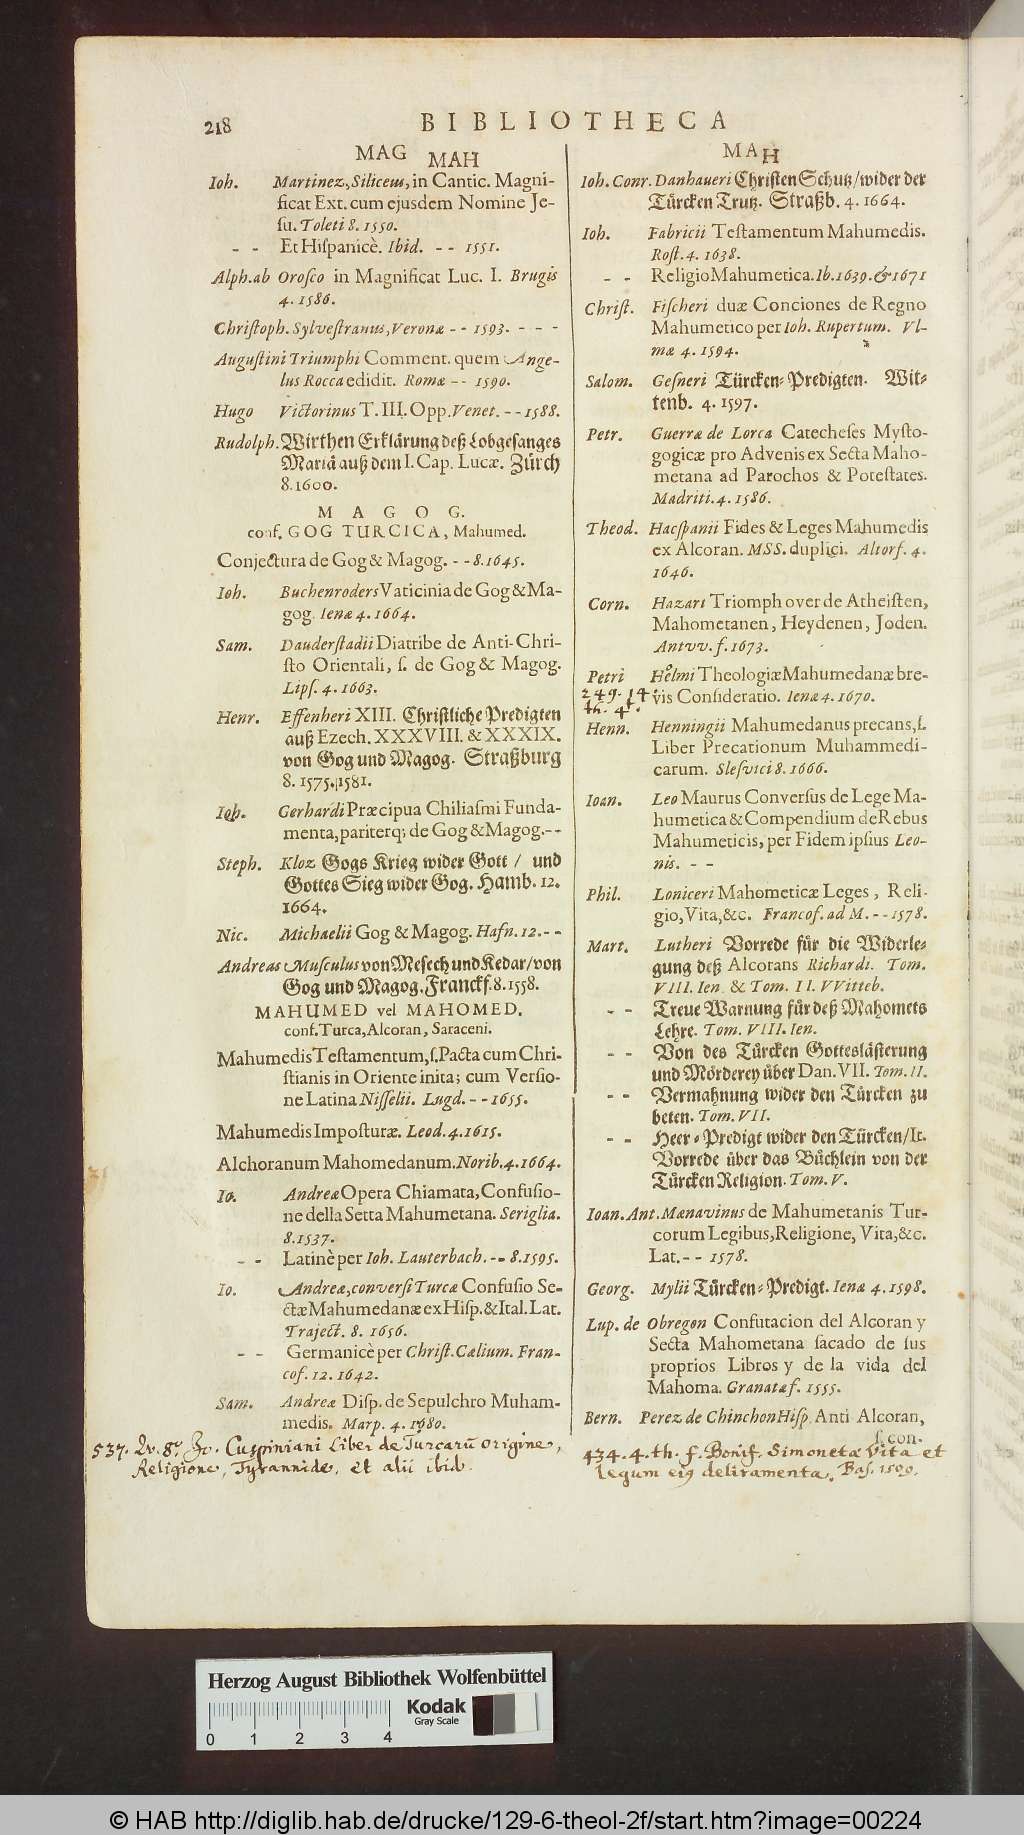 218 BIBLIOTHECA
MAG MAH
Ioh. Martinez, Siliceus, in Cantic. Magni-
ficat Ext. cum ejusdem Nomine Je-
ſu. Toleti 8. 1550.
- - Et Hiſpanicè. Ibid. - - 1551.
Alph. ab Oroſco in Magnificat Luc. I. Brugis
4. 1586.
Chriſtoph. Sylveſtranus, Veronæ - - 1593. - - -
Auguſtini Triumphi Comment. quem Ange-
lus Rocca edidit. Romæ - - 1590.
Hugo Victorinus T. III. Opp. Venet. - - 1588.
Rudolph. Wirthen Erklärung deß Lobgeſanges
Mariä auß dem I. Cap. Lucæ. Zürch
8. 1600.
MAGOG.
conf. GOG TURCICA, Mahumed.
Conjectura de Gog & Magog. - - 8. 1645.
Ioh. Buchenroders Vaticinia de Gog & Ma-
gog. Ienæ 4. 1664.
Sam. Dauderſtadii Diatribe de Anti-Chri-
ſto Orientali, ſ. de Gog & Magog.
Lipſ. 4. 1663.
Henr. Effenheri XIII. Chriſtliche Predigten
auß Ezech. XXXVIII. & XXXIX.
von Gog und Magog. Straßburg
8. 1575. 1581.
Ioh. Gerhardi Præcipua Chiliaſmi Funda-
menta, pariterq; de Gog & Magog. - -
Steph. Kloz Gogs Krieg wider Gott / und
Gottes Sieg wider Gog. Hamb. 12.
1664.
Nic. Michaelii Gog & Magog. Hafn. 12. - -
Andreas Muſculus von Meſech und Kedar / von
Gog und Magog. Franckf. 8. 1558.
MAHUMED vel MAHOMED.
conf. Turca, Alcoran, Saraceni.
Mahumedis Teſtamentum, ſ. Pacta cum Chri-
ſtianis in Oriente inita; cum Verſio-
ne Latina Niſſelii. Lugd. - - 1655.
Mahumedis Impoſturæ. Leod. 4. 1615.
Alchoranum Mahomedanum. Norib. 4. 1664.
Io. Andreæ Opera Chiamata, Confuſio-
ne della Setta Mahumetana. Seriglia.
8. 1537.
- - Latinè per Ioh. Lauterbach. - - 8. 1595.
Io. Andreæ, converſi Turcæ Confuſio Se-
ctæ Mahumedanæ ex Hiſp. & Ital. Lat.
Traject. 8. 1656.
- - Germanicè per Chriſt. Cælium. Fran-
cof. 12. 1642.
Sam. Andreæ Diſp. de Sepulchro Muham-
medis. Marp. 4. 1680.
537. Qu. 8º. Jo. Cuspiniani Liber de Turcarū origine,
Religione, Tyrannide, et alii ibid.
MAH
Ioh. Conr. Danhaueri Chriſten Schutz / wider der
Türcken Trutz. Straßb. 4. 1664.
Ioh. Fabricii Teſtamentum Mahumedis.
Roſt. 4. 1638.
- - Religio Mahumetica. Ib. 1639. & 1671
Chriſt. Fiſcheri duæ Conciones de Regno
Mahumetico per Ioh. Rupertum. Vl-
mæ 4. 1594.
Salom. Geſneri Türcken-Predigten. Wit-
tenb. 4. 1597.
Petr. Guerræ de Lorca Catecheſes Myſto-
gogicæ pro Advenis ex Secta Maho-
metana ad Parochos & Poteſtates.
Madriti. 4. 1586.
Theod. Hacſpanii Fides & Leges Mahumedis
ex Alcoran. MSS. duplici. Altorf. 4.
1646.
Corn. Hazart Triomph over de Atheiſten,
Mahometanen, Heydenen, Joden.
Antvv. f. 1673.
Petri Hoͤlmi Theologiæ Mahumedanæ bre-
249. 14 vis Conſideratio. Ienæ 4. 1670.
th. 4º.
Henn. Henningii Mahumedanus precans, ſ.
Liber Precationum Muhammedi-
carum. Sleſvici 8. 1666.
Ioan. Leo Maurus Converſus de Lege Ma-
humetica & Compendium de Rebus
Mahumeticis, per Fidem ipſius Leo-
nis. - -
Phil. Loniceri Mahometicæ Leges, Reli-
gio, Vita, &c. Francof. ad M. - - 1578.
Mart. Lutheri Vorrede für die Widerle-
gung deß Alcorans Richardi. Tom.
VIII. Ien. & Tom. II. VVitteb.
- - Treue Warnung für deß Mahomets
Lehre. Tom. VIII. Ien.
- - Von des Türcken Gottesläſterung
und Mörderey über Dan. VII. Tom. II.
- - Vermahnung wider den Türcken zu
beten. Tom. VII.
- - Heer-Predigt wider den Türcken / It.
Vorrede über das Büchlein von der
Türcken Religion. Tom. V.
Ioan. Ant. Mænavinus de Mahumetanis Tur-
corum Legibus, Religione, Vita, &c.
Lat. - - 1578.
Georg. Mylii Türcken-Predigt. Ienæ 4. 1598.
Lup. de Obregon Confutacion del Alcoran y
Secta Mahometana ſacado de ſus
proprios Libros y de la vida del
Mahoma. Granatæ f. 1555.
Bern. Perez de Chinchon Hiſp. Anti Alcoran,
ſ. con-
434. 4. th. f. Bonif. Simonetæ Vita et
legum ejꝰ deliramenta. Bas. 1509.
Herzog August Bibliothek Wolfenbüttel
Kodak
Gray Scale
0 1 2 3 4
© HAB http://diglib.hab.de/drucke/129-6-theol-2f/start.htm?image=00224